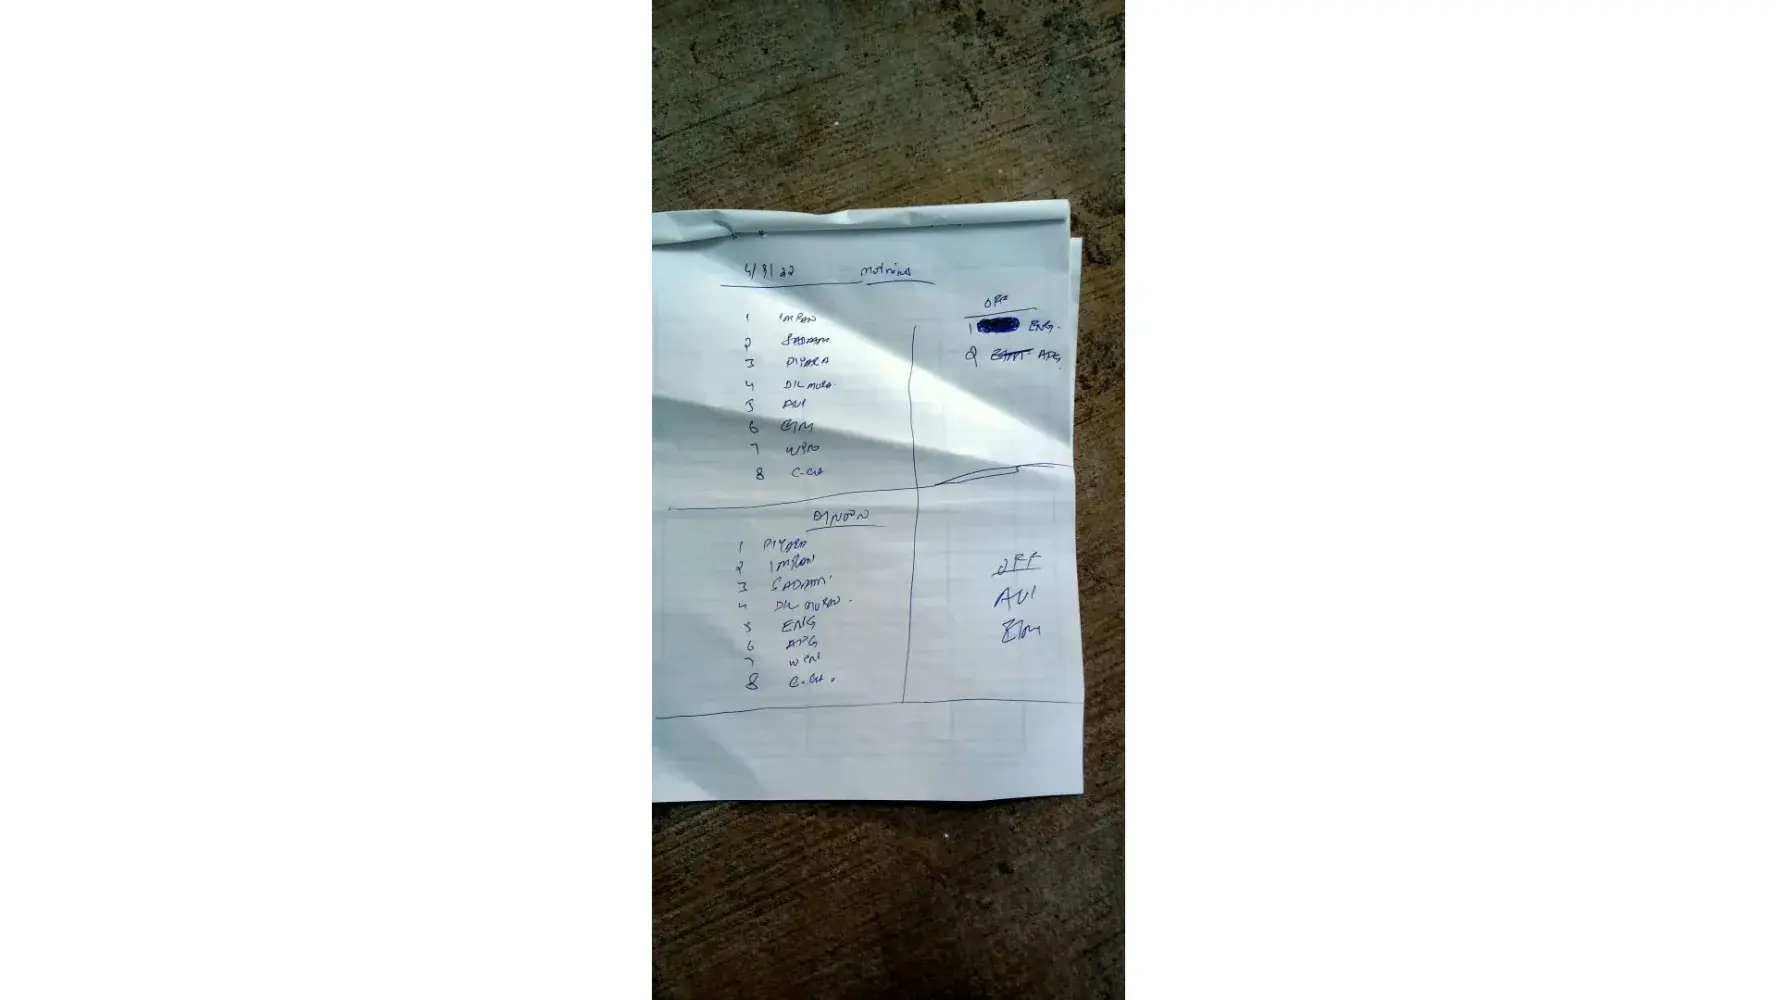 4/9/22 morning
1 IMRAN
2 SADAM
3 PIYARA
4 DIL MURA
5 AVI
6
7 WPN
8 C.CH
OFF
1 ENG.
2 APG
DINNER
1 PIYARA
2 IMRAN
3 SADAM
4 DIL MURAD.
5 ENG
6 APG
7 WPN
8 C.CH.
OFF
AVI